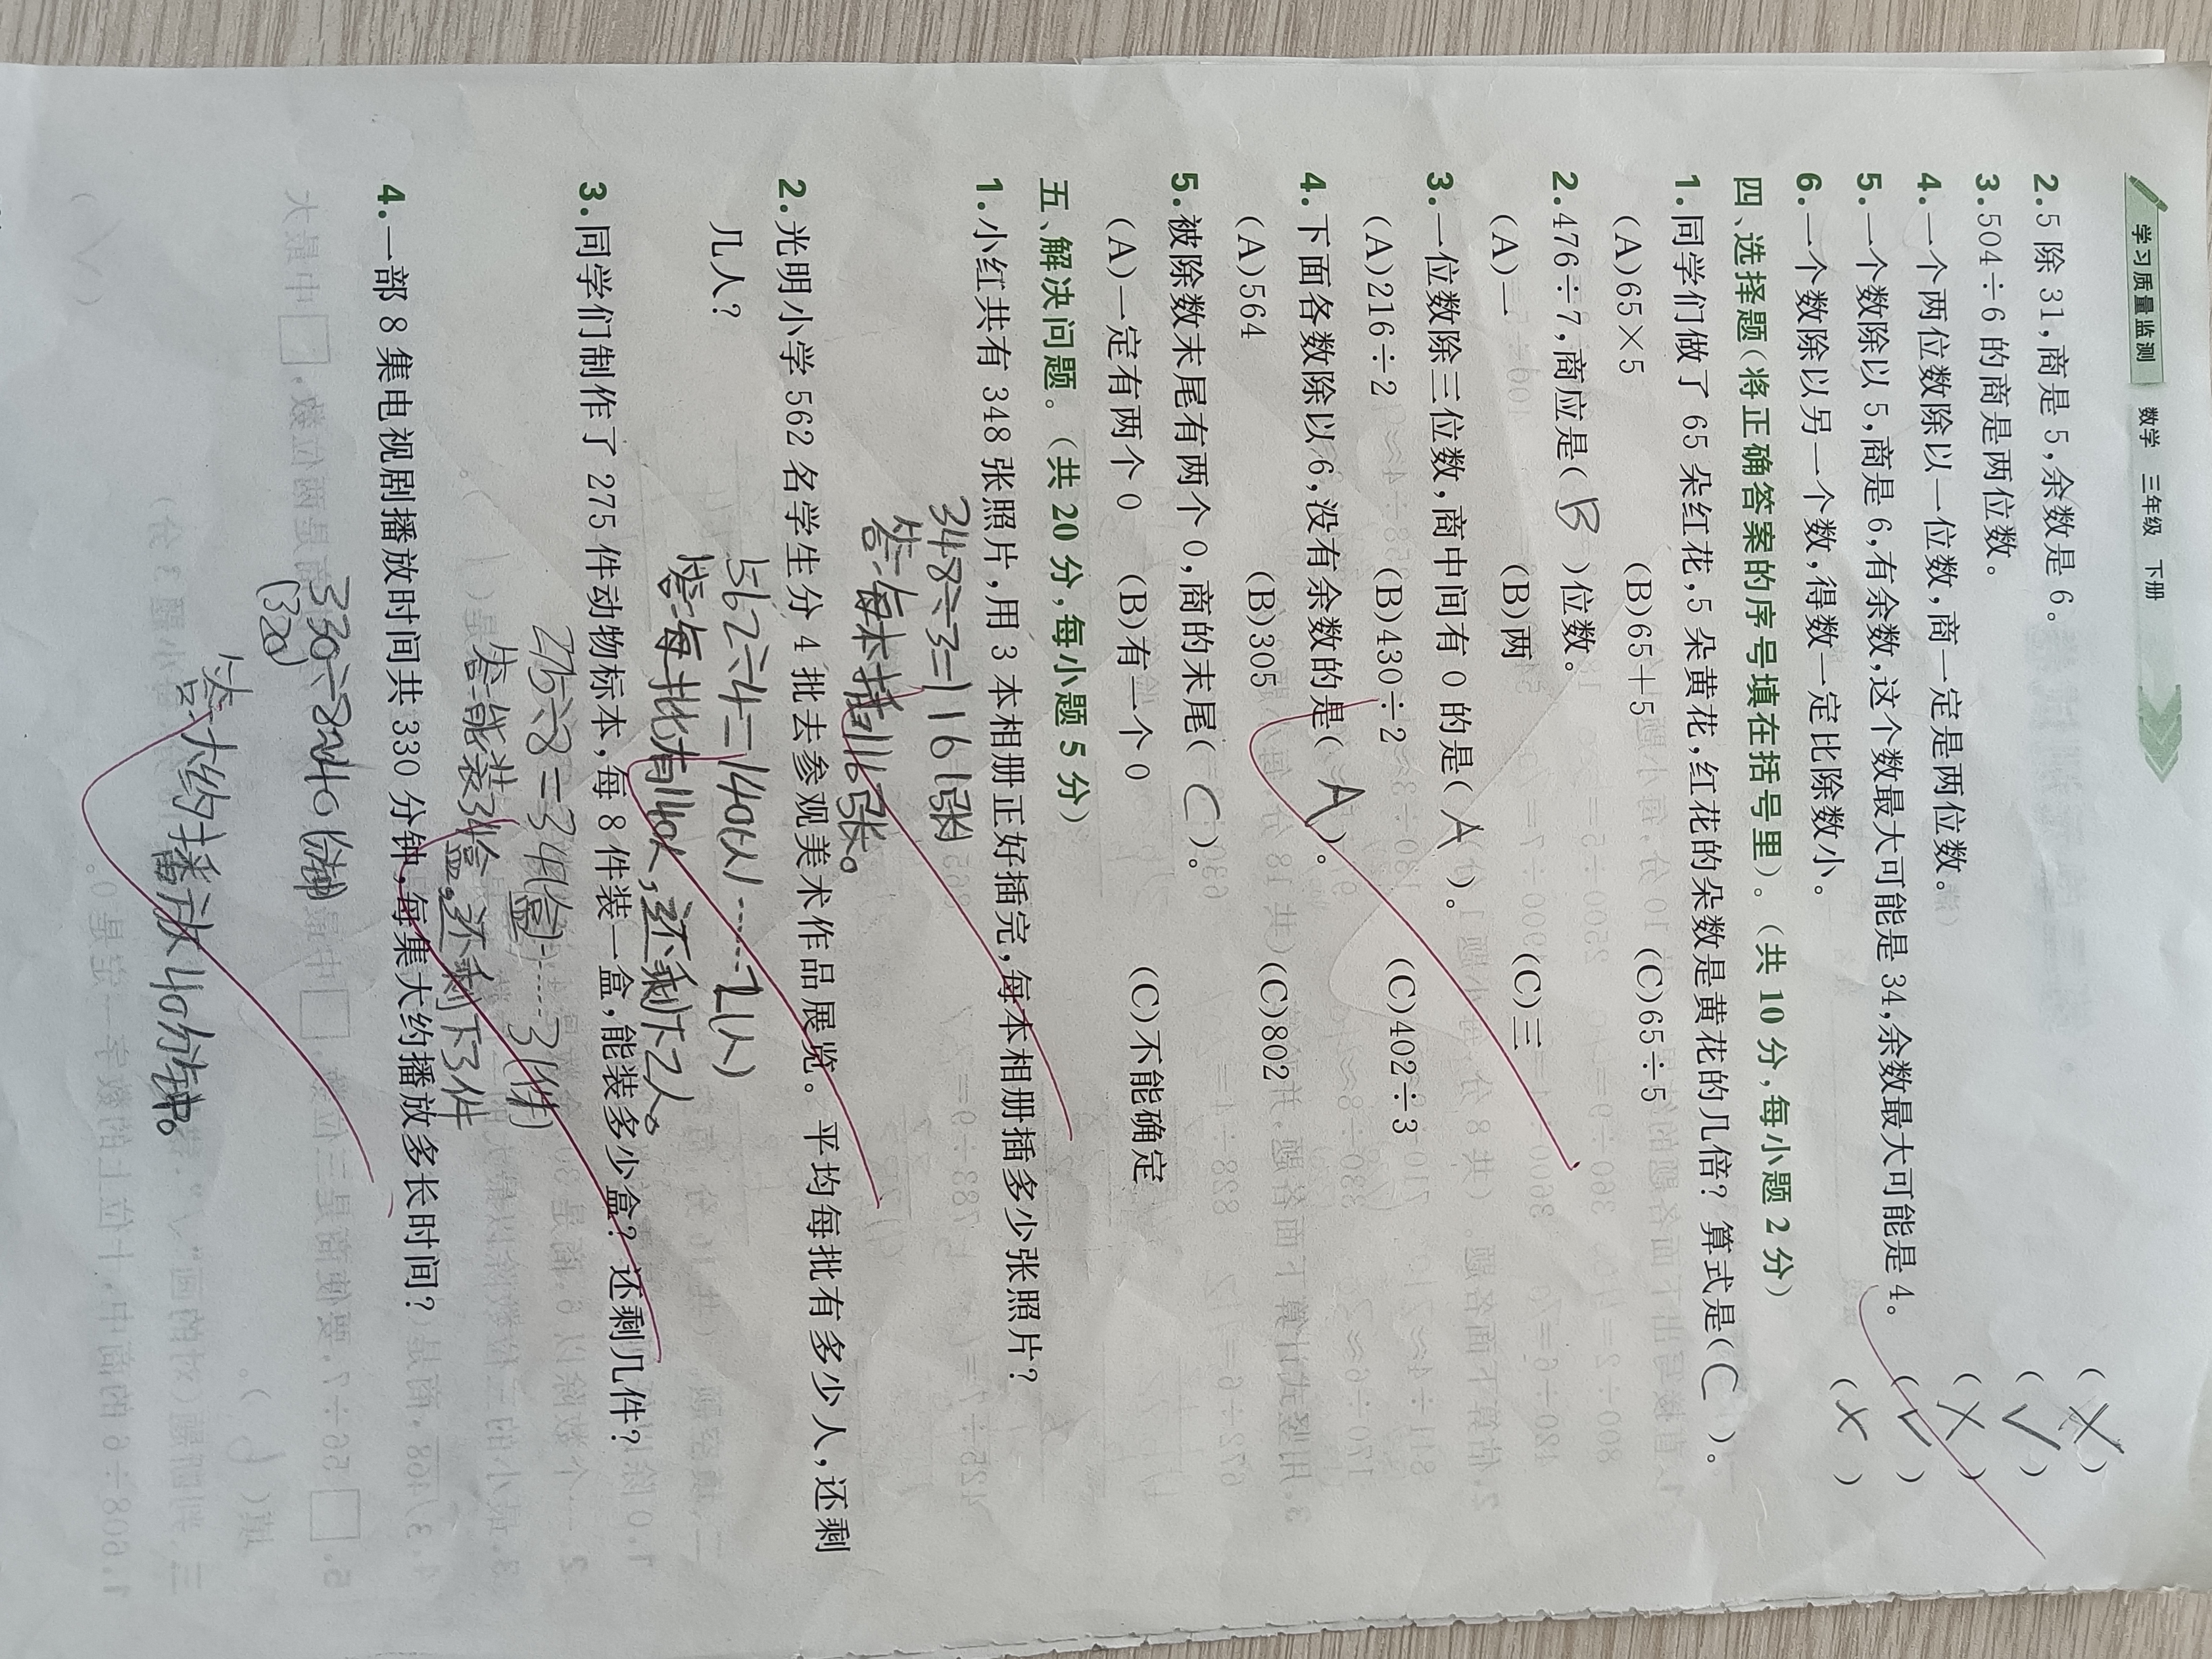 学习质量监测 数学 三年级 下册
2.5除31,商是5,余数是6。 (×)
3.504÷6的商是两位数。 (√)
4.一个两位数除以一位数,商一定是两位数。 (×)
5.一个数除以5,商是6,有余数,这个数最大可能是34,余数最大可能是4。 (√)
6.一个数除以另一个数,得数一定比除数小。 (×)
四、选择题(将正确答案的序号填在括号里)。(共10分,每小题2分)
1.同学们做了65朵红花,5朵黄花,红花的朵数是黄花的几倍?算式是(C)。
(A)65×5 (B)65+5 (C)65÷5
2.476÷7,商应是(B)位数。
(A)一 (B)两 (C)三
3.一位数除三位数,商中间有0的是(A)。
(A)216÷2 (B)430÷2 (C)402÷3
4.下面各数除以6,没有余数的是(A)。
(A)564 (B)305 (C)802
5.被除数末尾有两个0,商的末尾(C)。
(A)一定有两个0 (B)有一个0 (C)不能确定
五、解决问题。(共20分,每小题5分)
1.小红共有348张照片,用3本相册正好插完,每本相册插多少张照片?
348÷3=116(张)
答:每本插116张。
2.光明小学562名学生分4批去参观美术作品展览。平均每批有多少人,还剩
几人?
562÷4=140(人)……2(人)
答:每批有140人,还剩下2人。
3.同学们制作了275件动物标本,每8件装一盒,能装多少盒?还剩几件?
275÷8=34(盒)……3(件)
答:能装34盒。还剩下3件
4.一部8集电视剧播放时间共330分钟,每集大约播放多长时间?
330÷8≈40(分钟)
(320)
答:大约播放40分钟。